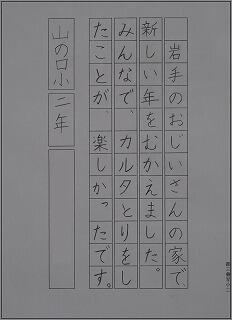 岩手のおじいさんの家で、
新しい年をむかえました。
みんなで、カルタとりをし
たことが、楽しかったです。
山の口小 二年